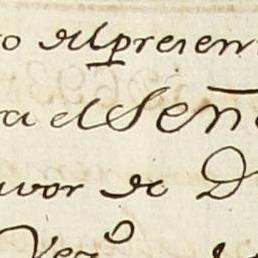 o del presen
ra el Señ
avor de D
Ver.o